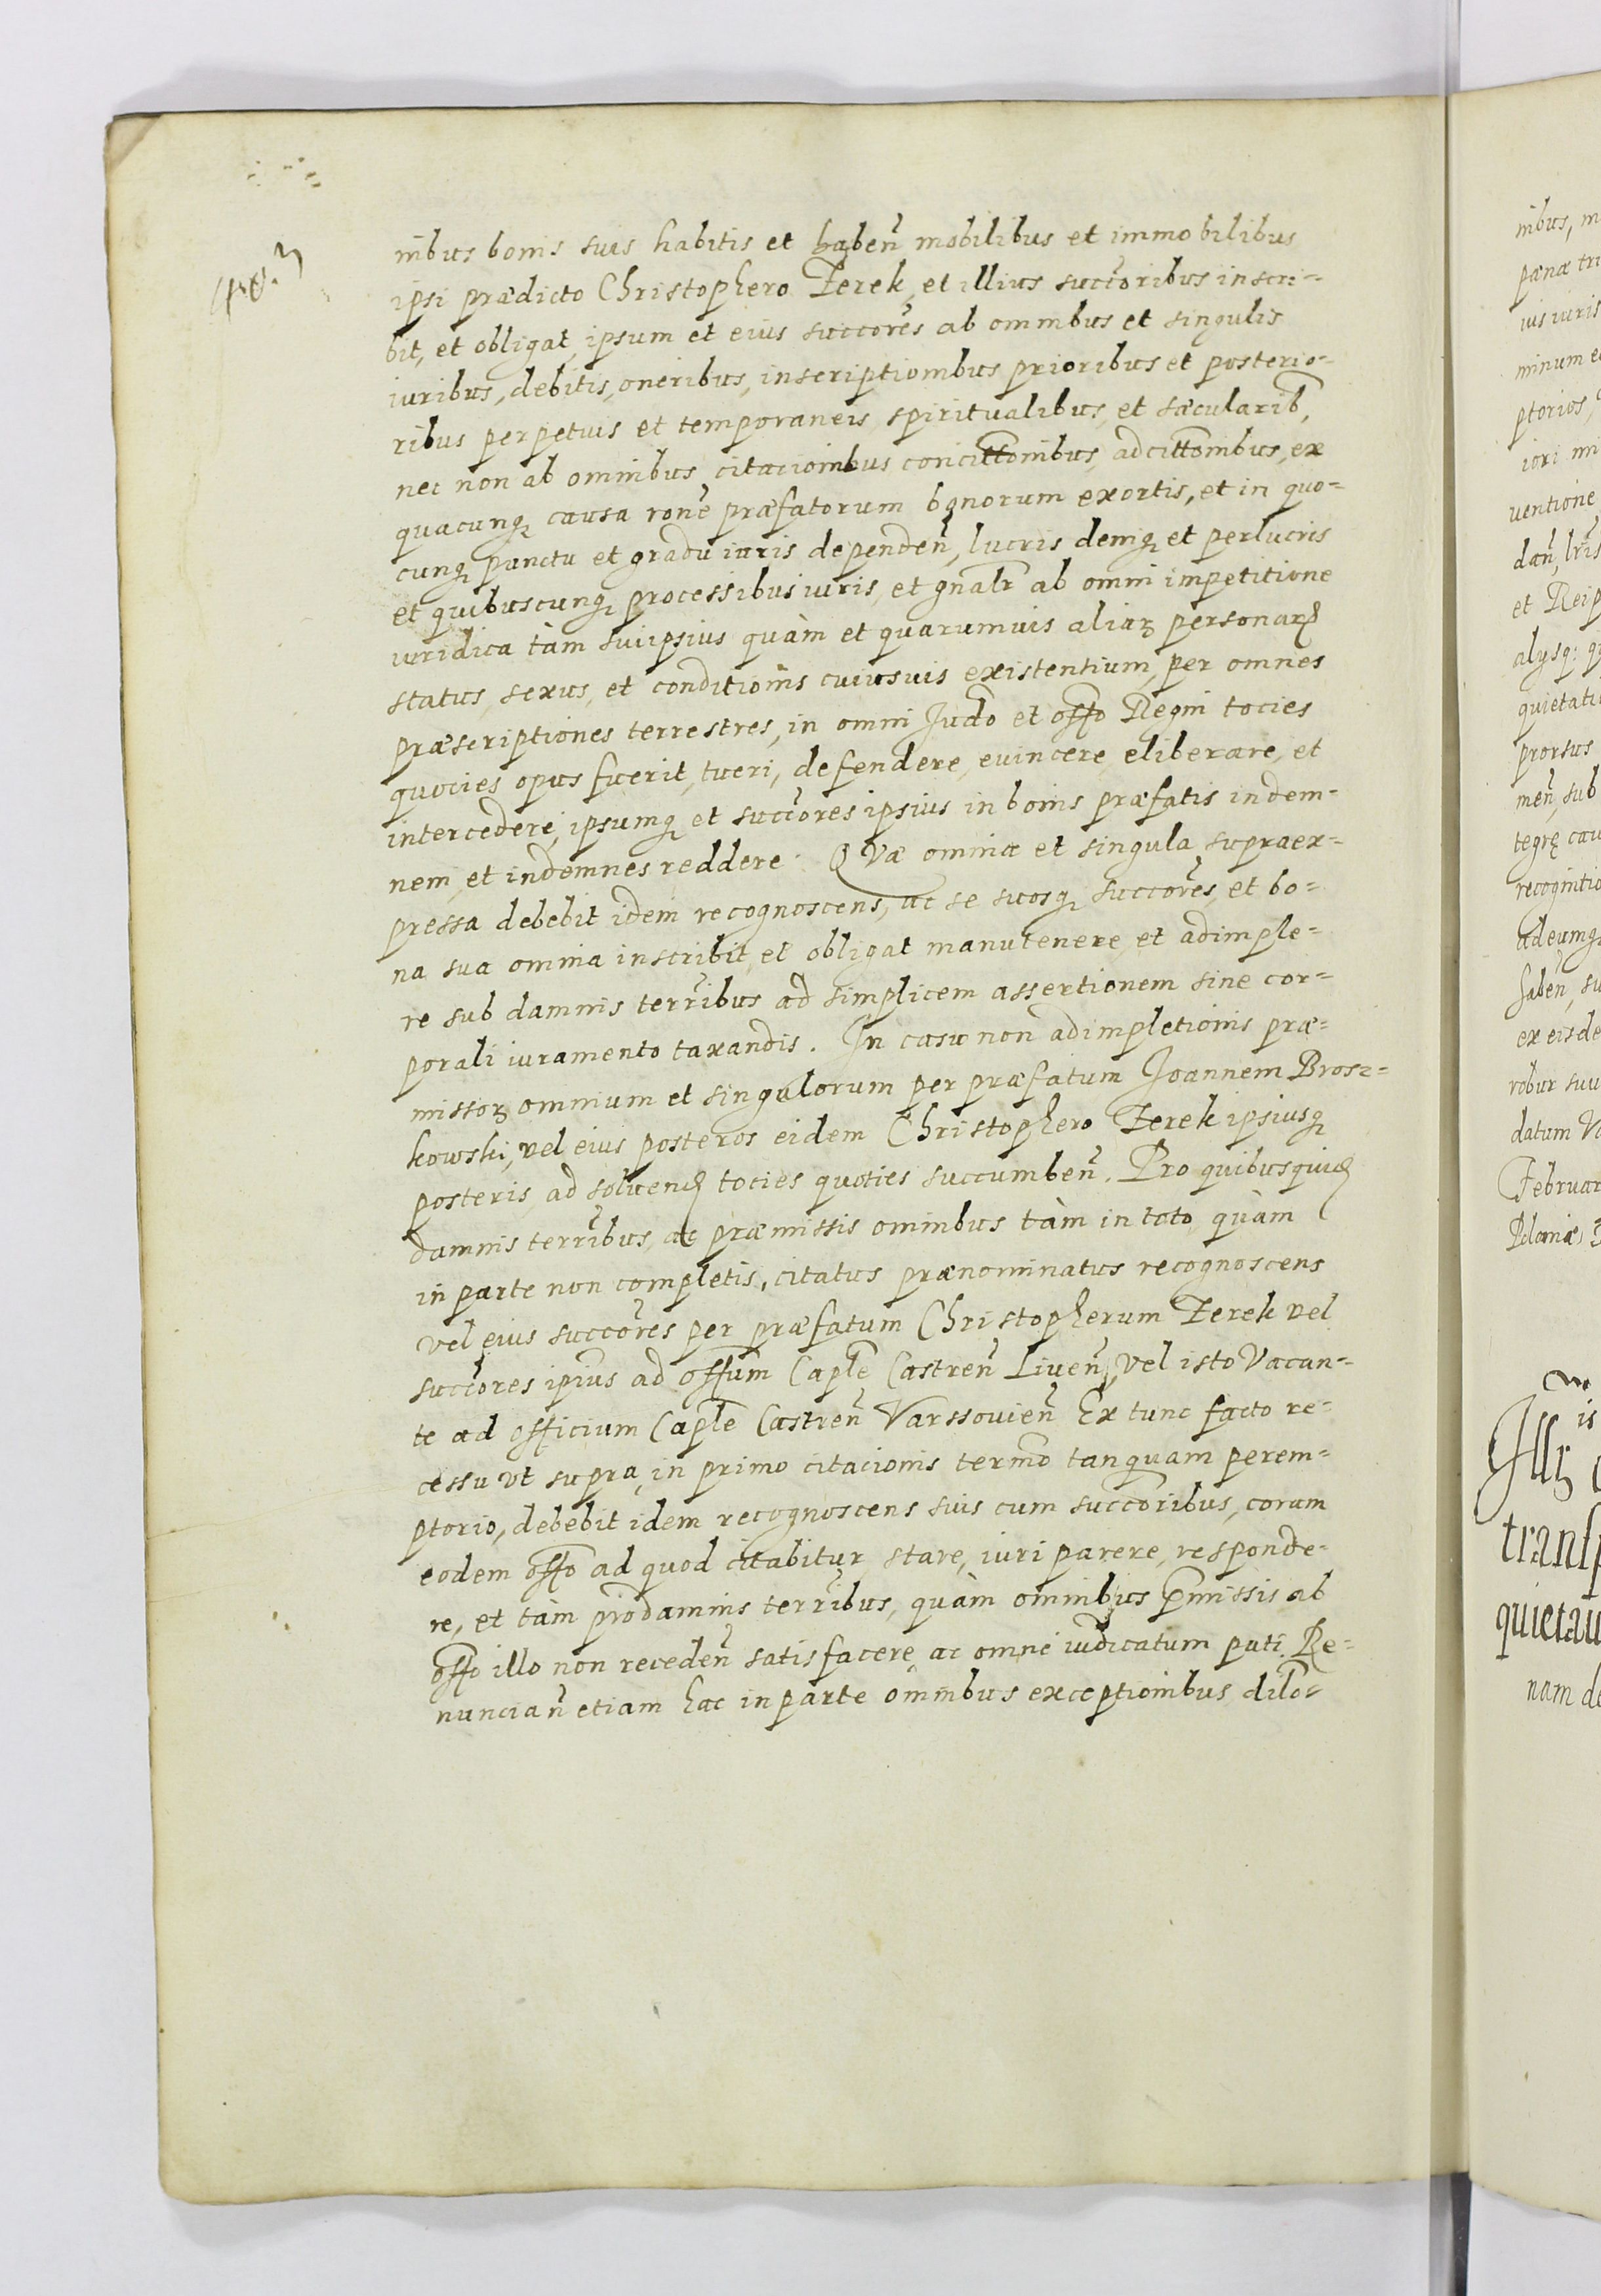 nibus bonis suis habitis et habeñ mobilibus et immobilibus
ipsi prædicto Christophero Terek, et illius succoribus inscri=
bit, et obligat, ipsum et eius succores ab omnibus et singulis
iuribus, debitis, oneribus, inscriptionibus prioribus et posterio=
ribus perpetuis et temporaneis, spiritualibus, et sæcularib,
nec non ab omnibus citacionibus concittonibus, adcittonibus, ex
quacunq causa rone præfatorum bonorum exortis, et in quo=
cunq punctu et gradu iuris dependeñ, lucris deniq et perlucris
et quibuscunq processibus iuris, et gnalr ab omni impetitione
iuridica tàm suiipsius quàm et quarumvis aliaꝝ personaꝝ
status, sexus, et conditionis cuiusvis existentium, per omnes
præscriptiones terrestres, in omni Judo et offo Regni tocies
quocies opus fuerit, tueri, defendere, evincere, eliberare, et
intercedere, ipsumq et succores ipsius in bonis præfatis indem=
nem, et indemnes reddere. Quæ omnia et singula supraex=
pressa debebit idem recognoscens, ac se suosq succores, et bo=
na sua omnia inscribit, et obligat manutenere, et adimple=
re sub damnis terribus ad simplicem assertionem sine cor=
porali iuramento taxandis. In casu non adimpletionis præ=
missoꝝ omnium et singulorum per præfatum Joannem Brosz=
kowski, vel eius posteros eidem Christophero Terek ipsiusq
posteris, ad solvend tocies quoties succumbeñ. Pro quibusquid
damnis terribus, ac præmissis omnibus tàm in toto, quàm
in parte non completis, citatus prænominatus recognoscens
vel eius succores per præfatum Christopherum Terek vel
succores ipius ad offum Caple Castreñ Liveñ, vel isto Vacan=
te ad officium Caple Castreñ Varssovieñ Ex tunc facto re=
cessu vt supra, in primo citacionis termo tanquam perem=
ptorio, debebit idem recognoscens suis cum succoribus, coram
eodem offo ad quod citabitur, stare, iuri parere, responde=
re, et tàm pro damnis terribus, quàm omnibus pmissis ab
offo illo non recedeñ satisfacere, ac omne iudicatum pati. Re=
nunciañ etiam hac in parte omnibus exceptionibus, dilo=
nibus, m
pænæ tri
ius iuris
minum e
ptorios,
iori mi
ventione
dañ, lris
et Reip
alysq: q
quietati
prorsus
meñ, sub
tegrę cau
recognitio
adeumq
habeñ, su
ex eisde
robur suu
datum Va
Februar
Poloniæ,
is
Illꝝ
transp
quietau
nam de